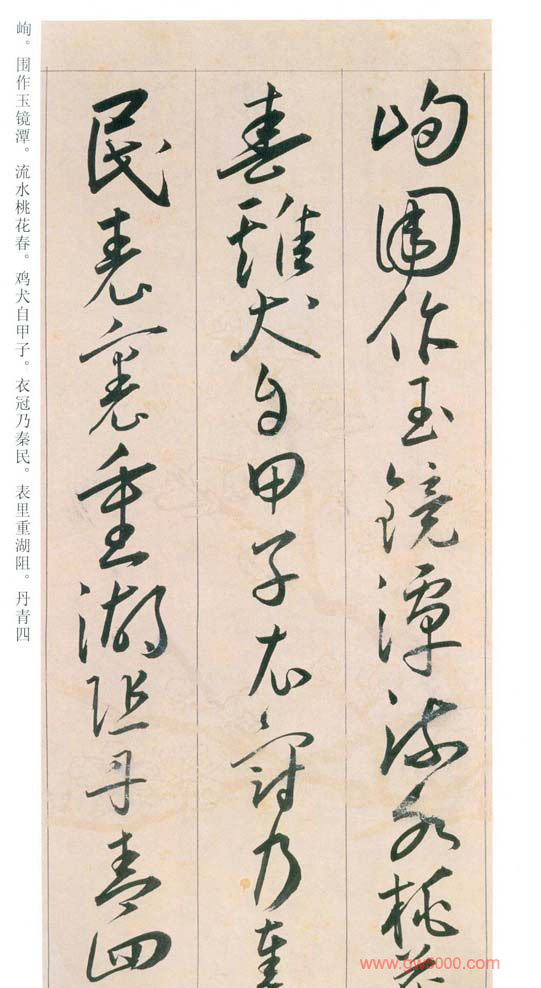 峋圍作玉鏡潭流水桃花
春雞犬自甲子衣冠乃秦
民表裏重湖阻丹青四
峋。围作玉镜潭。流水桃花春。鸡犬自甲子。衣冠乃秦民。表里重湖阻。丹青四
www.gw5000.com